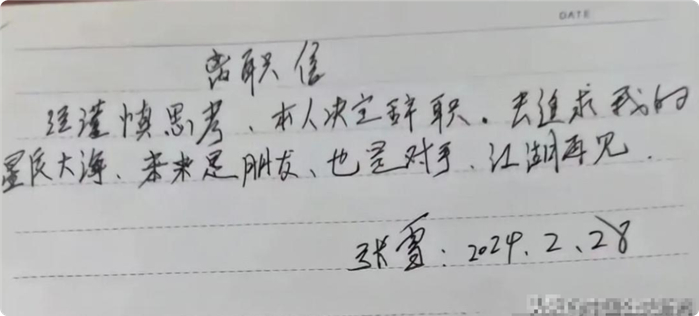 DATE
离职信
经谨慎思考、本人决定辞职。去追求我的
星辰大海、未来是朋友、也是对手、江湖再见.
张雪. 2024.2.28